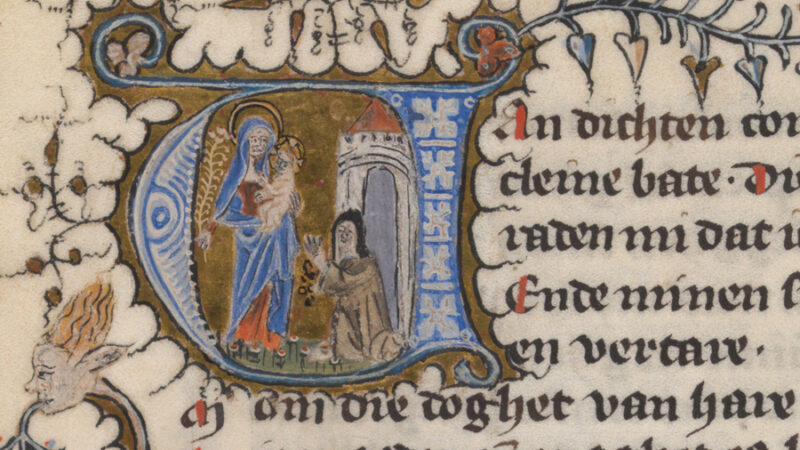 Van dichten co
cleine bate. Di
raden mi dat i
Ende minen s
en vertare.
om die doghet van hare